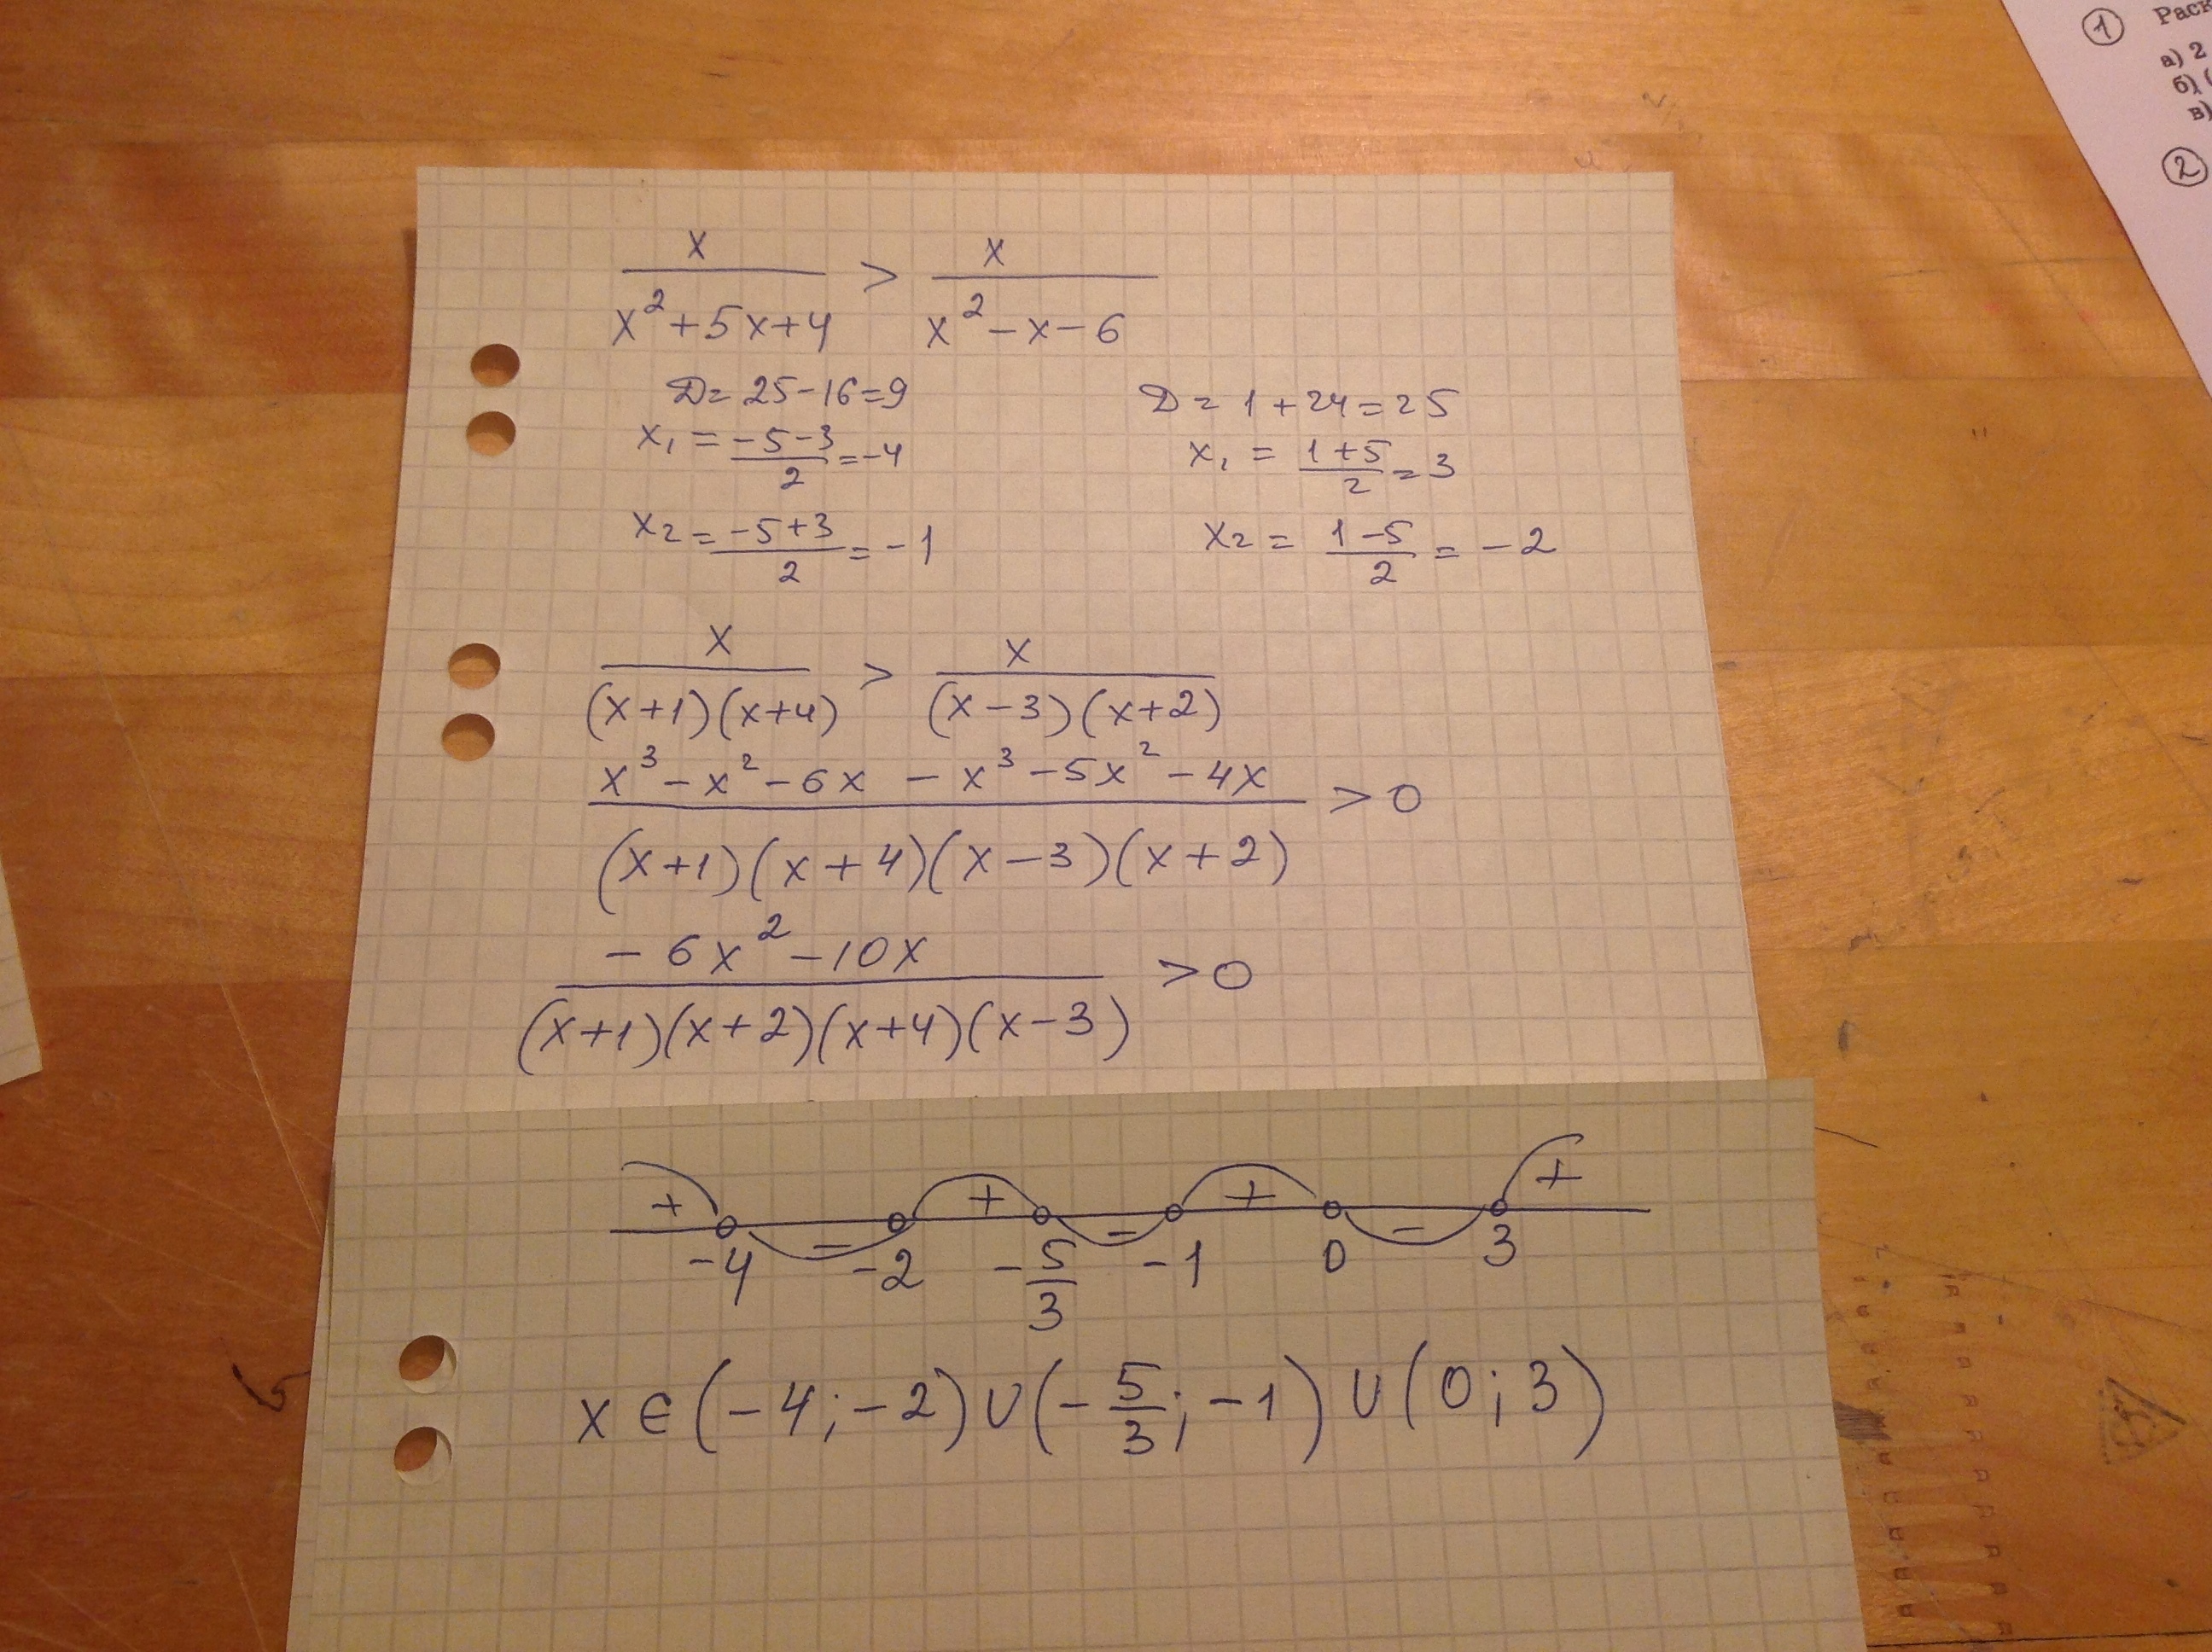 x/(x²+5x+4) > x/(x²-x-6)
D= 25-16=9
x₁ = (-5-3)/2 = -4
x₂ = (-5+3)/2 = -1
D = 1+24=25
x₁ = (1+5)/2 = 3
x₂ = (1-5)/2 = -2
x/((x+1)(x+4)) > x/((x-3)(x+2))
(x³-x²-6x - x³-5x²-4x)/((x+1)(x+4)(x-3)(x+2)) > 0
(-6x²-10x)/((x+1)(x+2)(x+4)(x-3)) > 0
+ - + - + - +
-4 -2 -5/3 -1 0 3
x ∈ (-4;-2) ∪ (-5/3;-1) ∪ (0;3)
① Раск
а) 2
б) (
в)
②